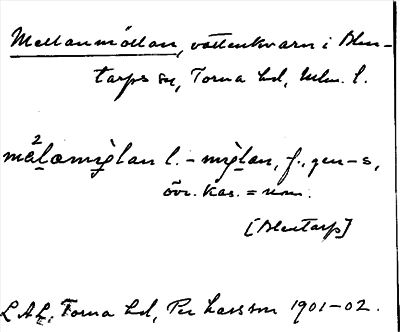 Mellanmöllan, vattenkvarn i Blen-
tarps sn, Torna hd, Mlm. l.
måḷæmìg̣lan l. -mìg̣lan, f., gen -s,
övr. kas. = nom.
[Blentarp]
LAL, Torna hd, Per Larsson 1901-02.